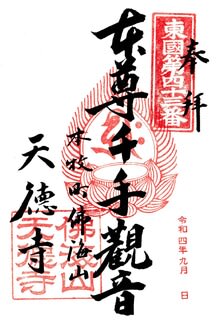 奉拝
東國第四十三番
本尊千手觀音
本牧町佛海山
天德寺
佛海山
天德寺
令和四年九月 日